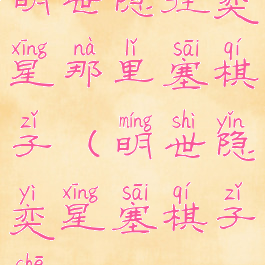 明世隐狂奕
xīng nà lǐ sāi qí
星那里塞棋
zǐ míng shì yǐn
子（明世隐
yì xīng sāi qí zǐ
奕星塞棋子
chē